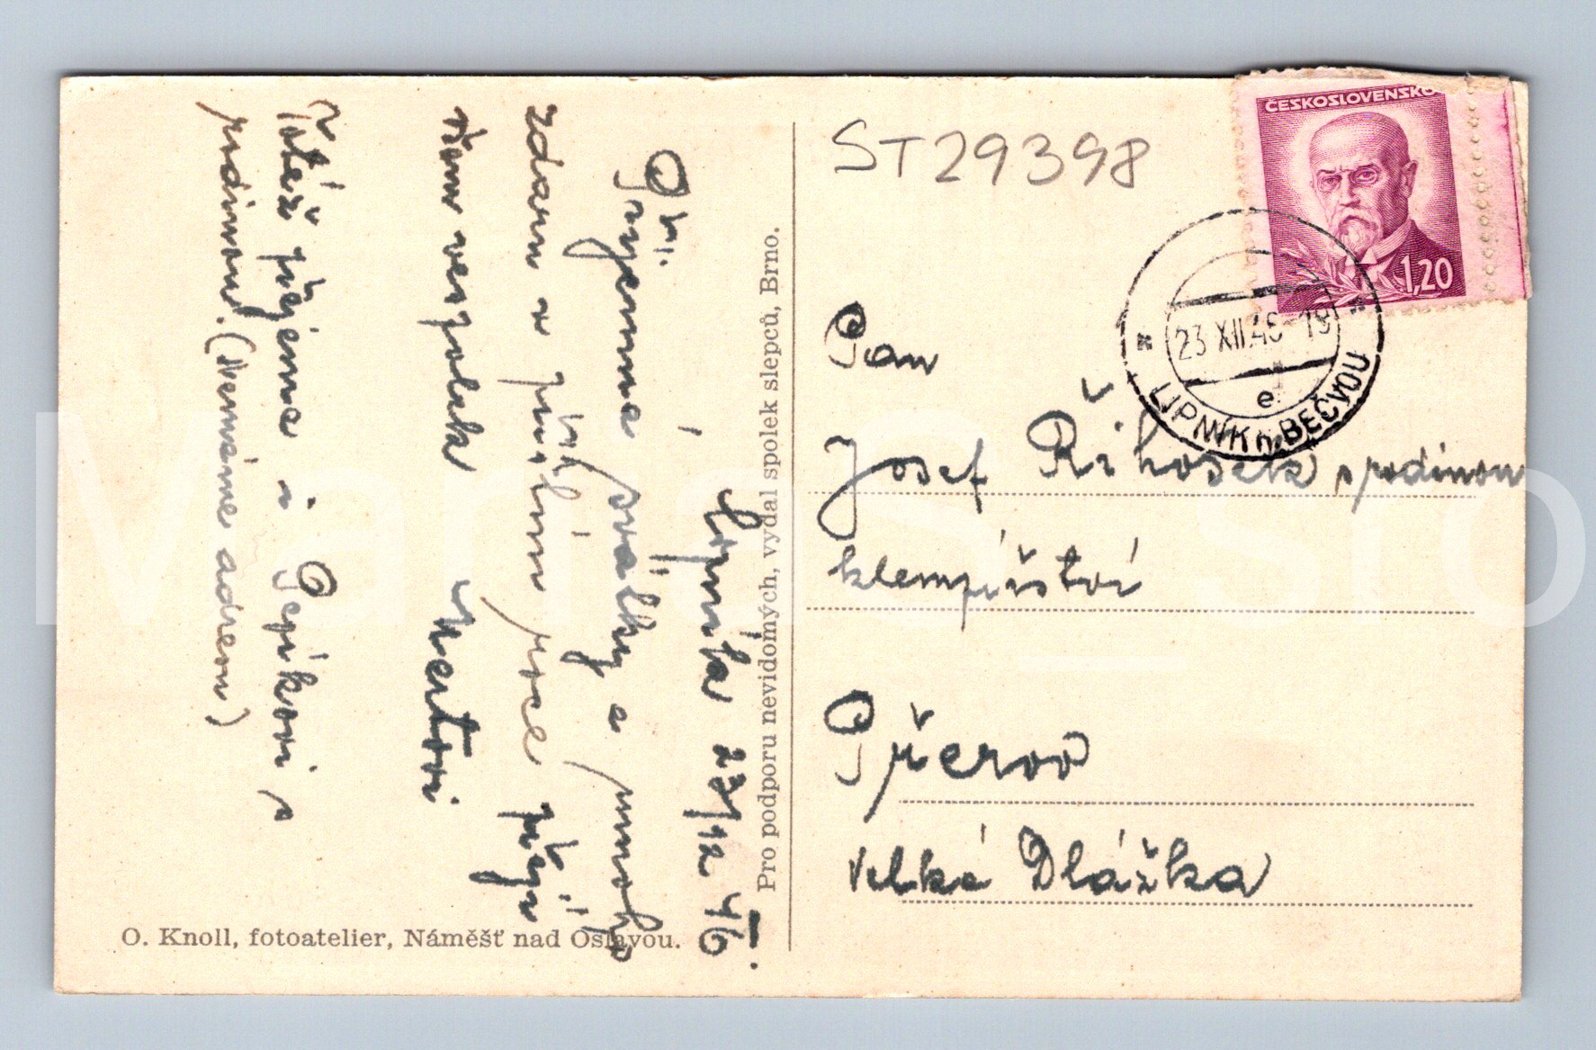 ST29398
ČESKOSLOVENSKO
1,20
23 XII.46-19
e
LIPNÍK n. BEČVOU
Pan
Josef Řihošek s rodinou
klempířství
Přerov
Velká Dlážka
Pro podporu nevidomých, vydal spolek slepců, Brno.
Lipník 23/12 46.
Příjemné svátky a mnoho
zdaru v příštím roce přejí
všem vespolek
Totéž přejeme i Pepíkovi s
rodinou. (Nemáme adresu)
O. Knoll, fotoatelier, Náměšť nad Oslavou.